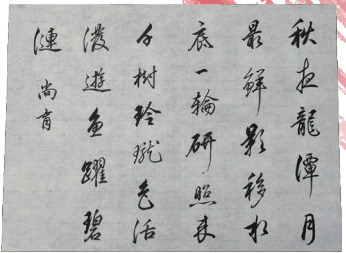 秋夜龍潭月
最鮮影移水
底一輪研照來
千樹玲瓏色活
潑遊魚躍碧
漣 尚育